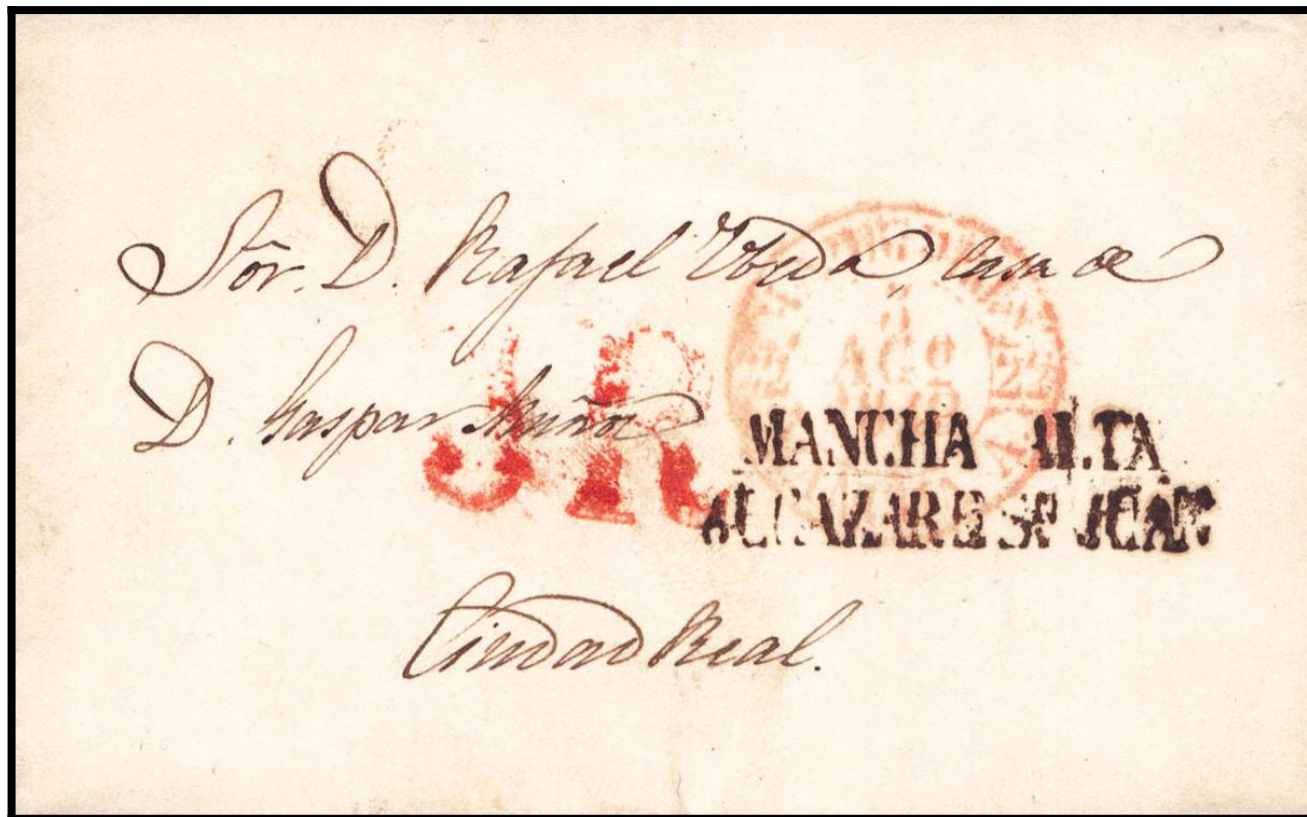 Sôr. D. Rafael Ubeda, casa de
D. Gaspar Muñoz
3R
5
AGO
MANCHA ALTA
ALCAZAR DE Sn JUAN
Ciudad Real.